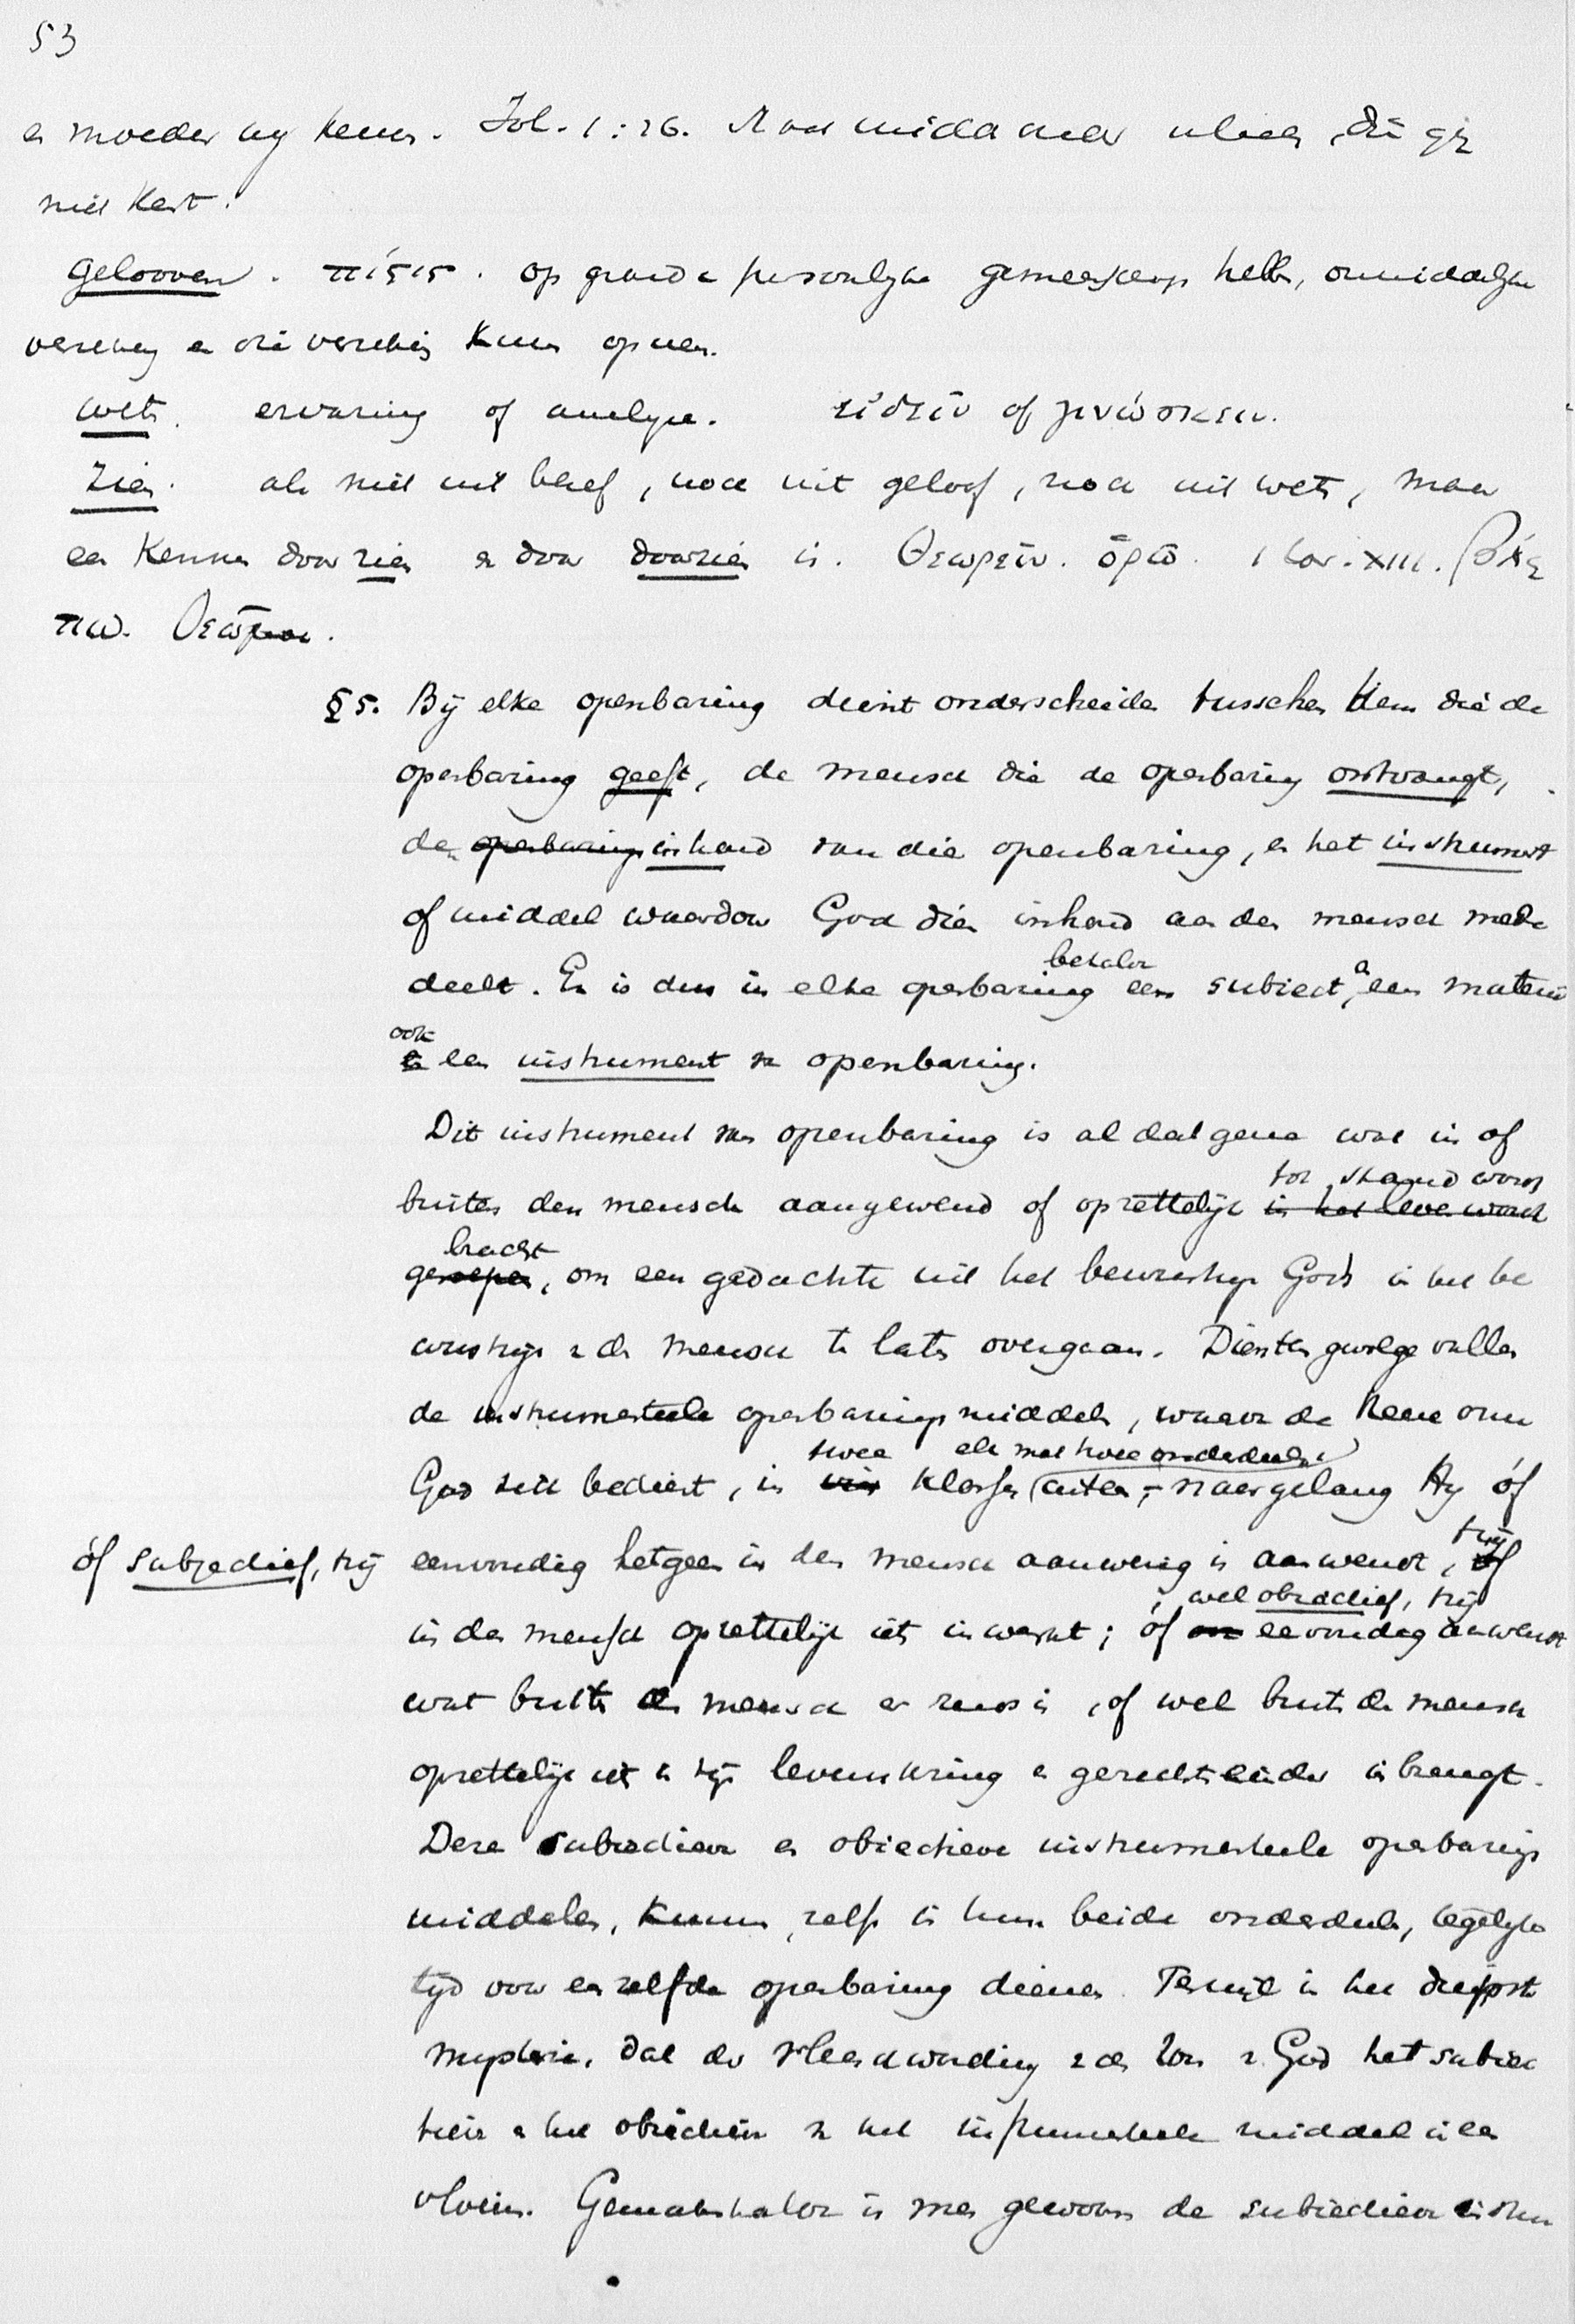 53
en moeder kennen. Joh. 1:26. Maar midden onder ulieden, die gij
niet kent.
Gelooven. πίστις. op grond persoonlijke gemeenschap hebben, onmiddelijke
en die kennen op
weten. ervaring of analyse. εἰδεῖν of γινώσκειν.
Zien. als niet uit besef, noch uit geloof, noch uit weten, maar
een kennen door zien en door doorzien is. Θεωρεῖν. ὁρῶ. 1 Cor. XIII. βλέ
πω.
§ 5. Bij elke openbaring dient onderscheiden tusschen Hem die de
openbaring geeft, de mensch die de openbaring ontvangt,
den openbarings inhoud van die openbaring, en het instrument
of middel waardoor God dien inhoud aan den mensch mede
behalve
deelt. Er is dus in elke openbaring een subiect en een materie
ook
en een instrument van openbaring.
Dit instrument van openbaring is al datgene wat in of
tot stand wordt
buiten den mensch aangewend of opzettelijk in het leven wordt
bracht
geroepen, om een gedachte uit het bewustzijn Gods in het be
wustzijn van den mensch te laten overgaan. Dientengevolge vallen
de instrumenteele openbaringsmiddelen, waarvan de Heere onze
twee elk met twee onderdeelen
God zich bedient, in vier klassen uiteen, naargelang Hij óf
óf subjectief, hij eenvoudig hetgeen in den mensch aanwezig is aanwendt, óf
hij
wel obiectief, hij
in den mensch opzettelijk iets inwerkt; óf eenvoudig aanwendt
wat buiten den mensch er reeds is, of wel buiten den mensch
opzettelijk iets in zijn levenskring en gezichtseinder inbrengt.
Deze subiectieve en obiectieve instrumenteele openbarings
middelen, kunnen, zelfs in hun beide onderdeelen, tegelijker
tijd voor eenzelfde openbaring dienen. Terwijl in het diepste
mysterie, dat der vleeschwording van den Zoon van God het subiec
tieve en het obiectieve van het instrumenteele middel in een
vloeien. Gemakshalve is men gewoon de subiectieve instru